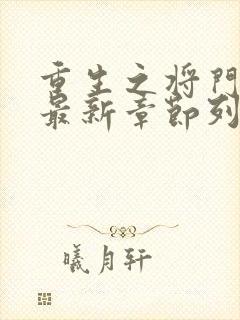 重生之将门
最新章节列
曦月轩